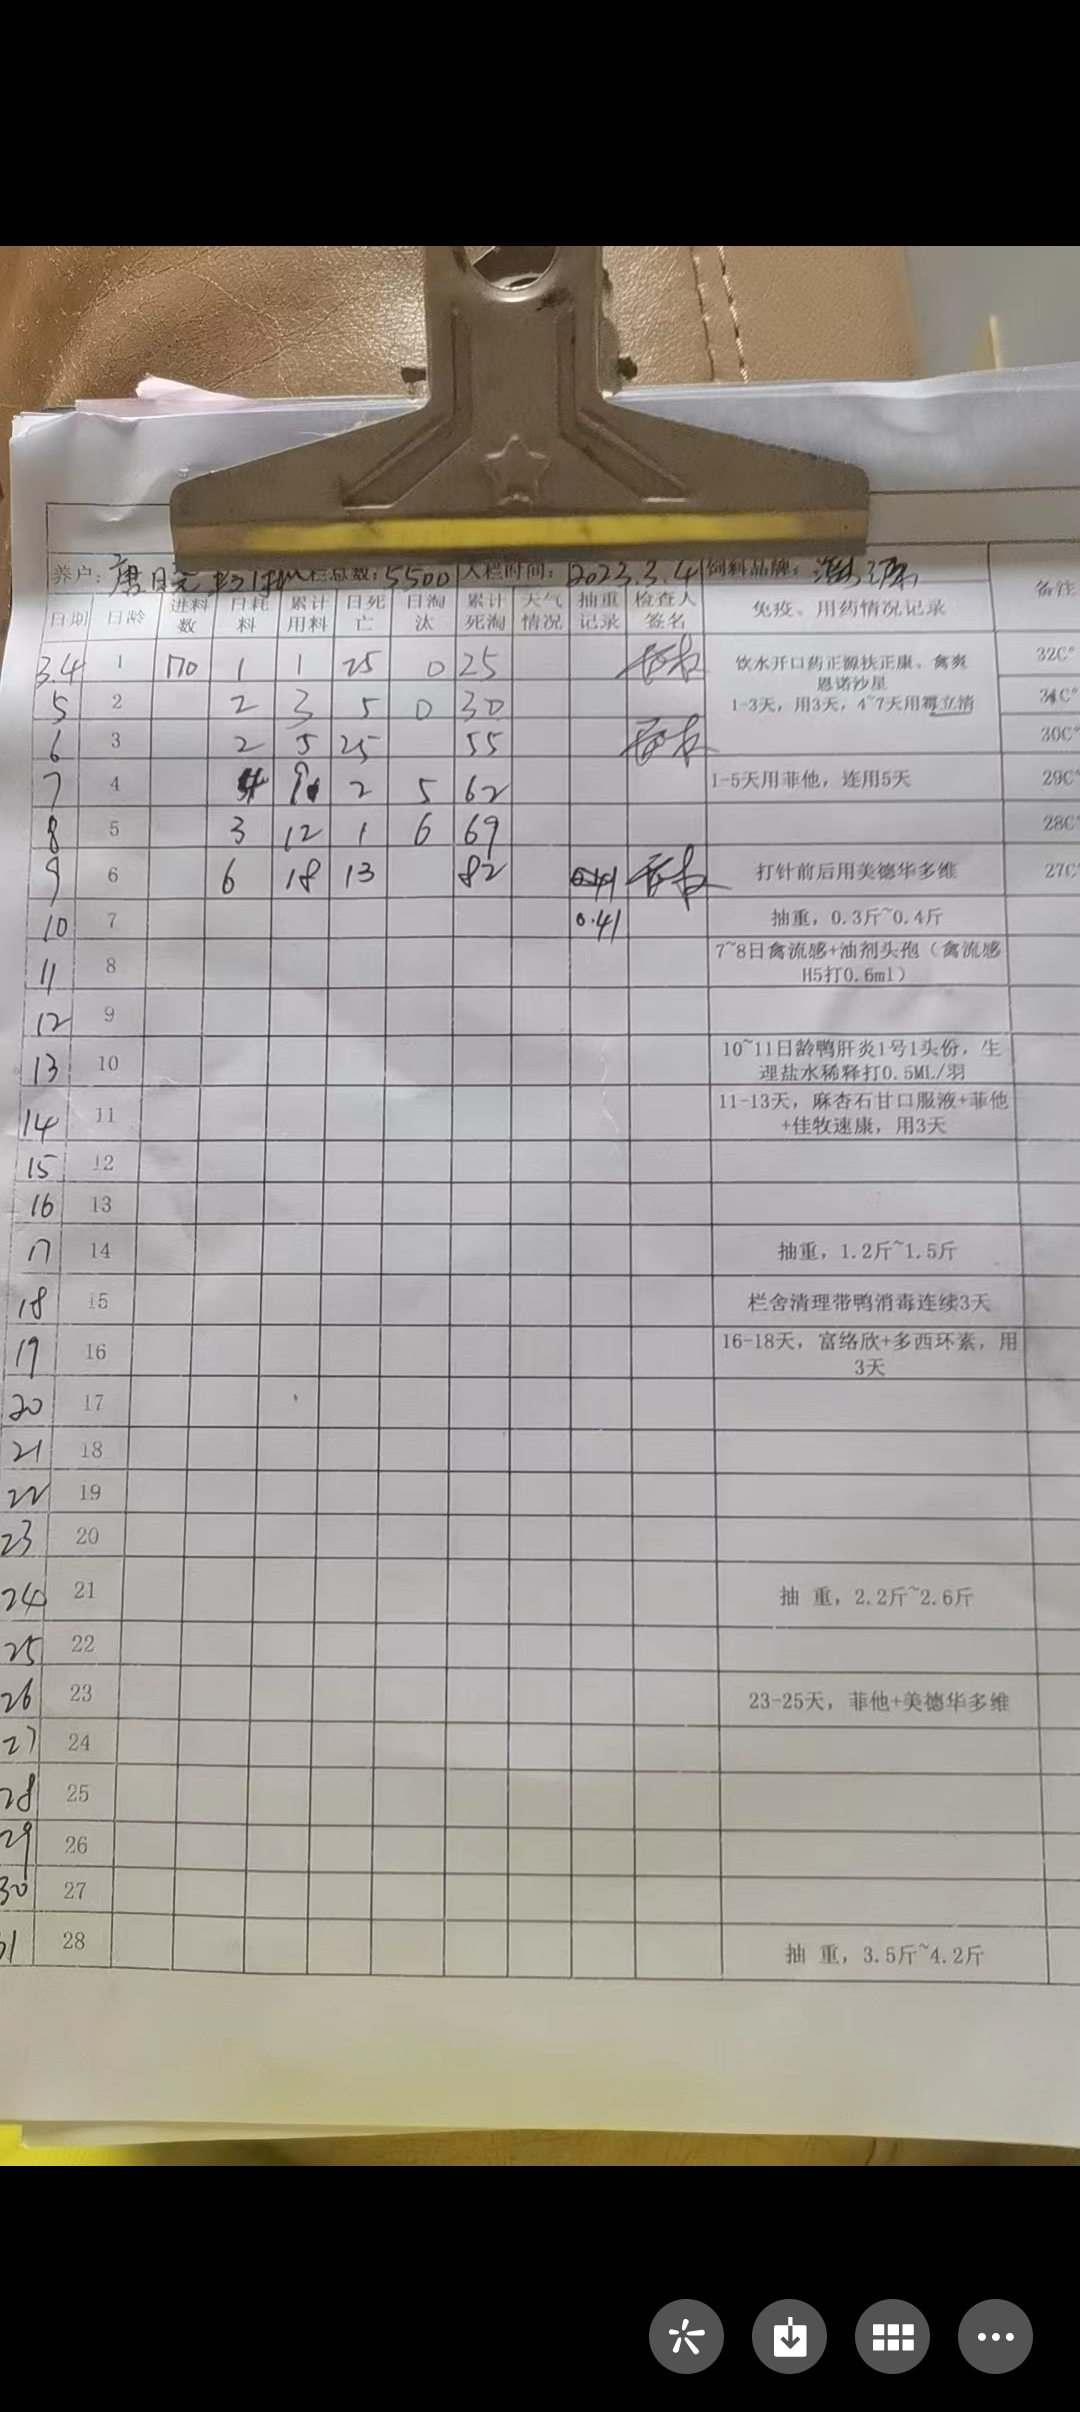 养户: 入栏总数: 5500 入栏时间: 2023.3.4 饲料品牌:
日期 日龄 进料数 日耗料 累计用料 日死亡 日淘汰 累计死淘 天气情况 抽重记录 检查人签名 免疫、用药情况记录 备注
3.4 1 170 1 1 25 0 25 饮水开口药正源扶正康、禽爽 32C°
恩诺沙星
5 2 2 3 5 0 30 1-3天，用3天，4~7天用霉立清 31C°
6 3 2 5 25 55 30C°
7 4 4 9 2 5 62 1-5天用菲他，连用5天 29C°
8 5 3 12 1 6 69 28C°
9 6 6 18 13 82 0.41 打针前后用美德华多维 27C°
10 7 0.41 抽重，0.3斤~0.4斤
11 8 7~8日禽流感+油剂头孢（禽流感
H5打0.6ml）
12 9
13 10 10~11日龄鸭肝炎1号1头份，生
理盐水稀释打0.5ML/羽
14 11 11-13天，麻杏石甘口服液+菲他
+佳牧速康，用3天
15 12
16 13
17 14 抽重，1.2斤~1.5斤
18 15 栏舍清理带鸭消毒连续3天
19 16 16-18天，富络欣+多西环素，用
3天
20 17
21 18
22 19
23 20
24 21 抽 重，2.2斤~2.6斤
25 22
26 23 23-25天，菲他+美德华多维
27 24
28 25
29 26
30 27
31 28 抽 重，3.5斤~4.2斤